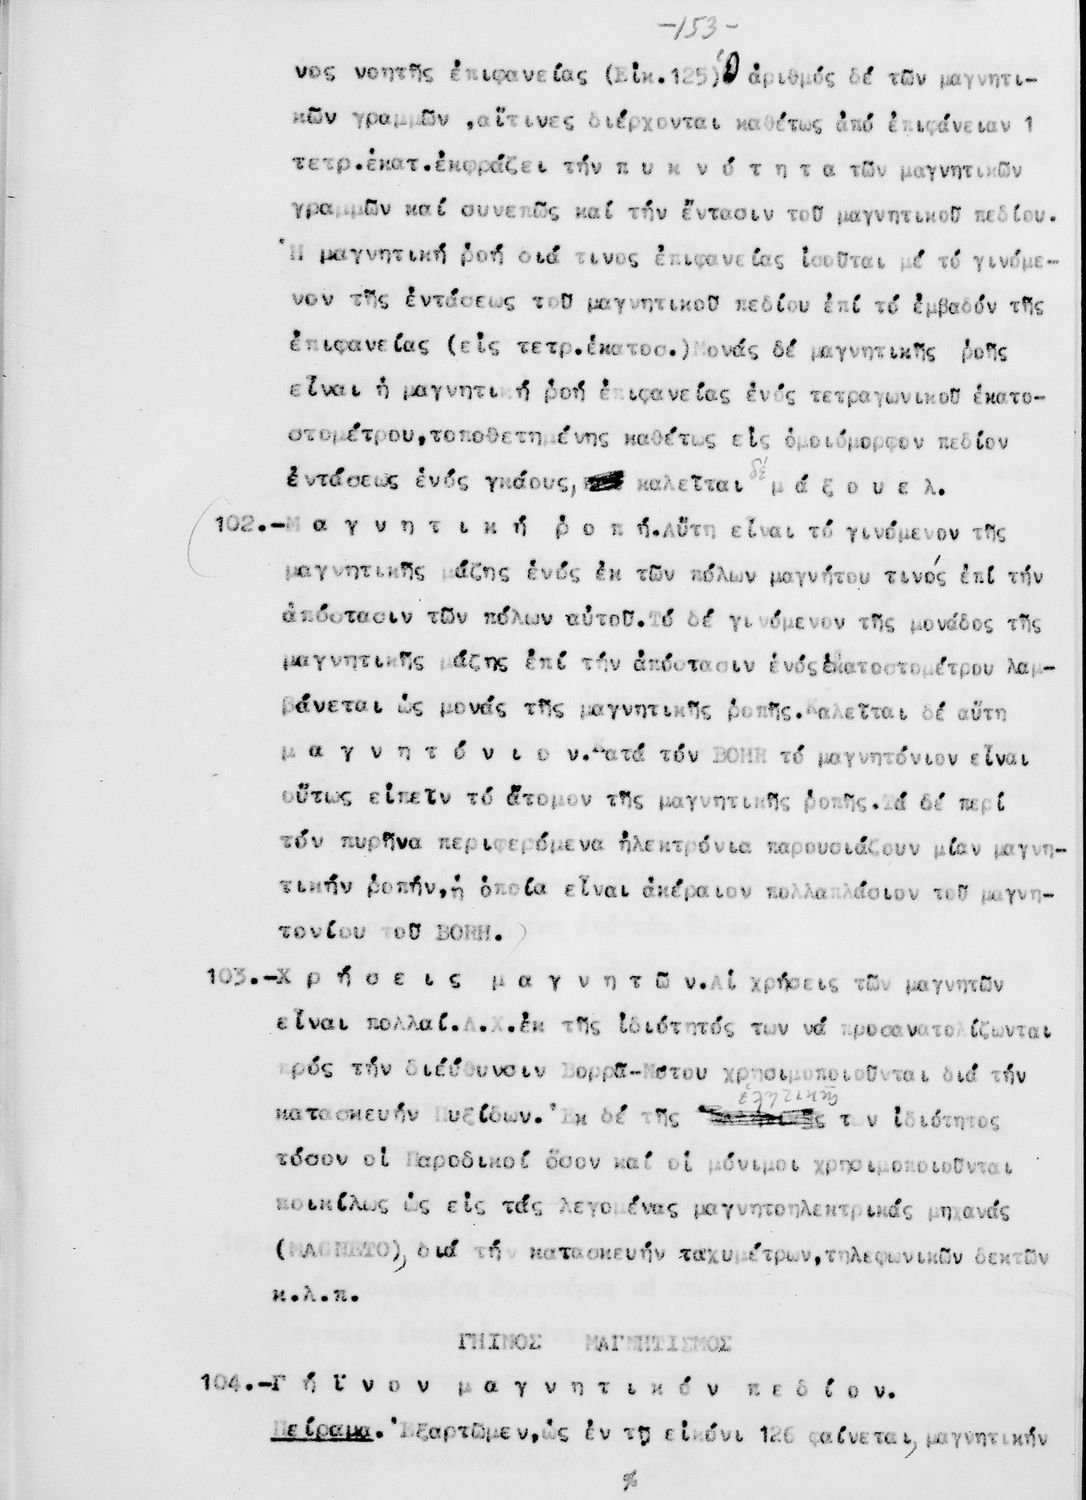 -153-
νος νοητῆς ἐπιφανείας (Εἰκ.125)Ὁ ἀριθμός δέ τῶν μαγνητι-
κῶν γραμμῶν ,αἵτινες διέρχονται καθέτως ἀπό ἐπιφάνειαν 1
τετρ.ἑκατ.ἐκφράζει τήν π υ κ ν ό τ η τ α τῶν μαγνητικῶν
γραμμῶν καί συνεπῶς καί τήν ἔντασιν τοῦ μαγνητικοῦ πεδίου.
Ἡ μαγνητική ῥοή διά τινος ἐπιφανείας ἰσοῦται μέ τό γινόμε-
νον τῆς ἐντάσεως τοῦ μαγνητικοῦ πεδίου ἐπί τό ἐμβαδόν τῆς
ἐπιφανείας (εἰς τετρ.ἑκατοσ.)Μονάς δέ μαγνητικῆς ῥοῆς
εἶναι ἡ μαγνητική ῥοή ἐπιφανείας ἑνός τετραγωνικοῦ ἑκατο-
στομέτρου,τοποθετημένης καθέτως εἰς ὁμοιόμορφον πεδίον
ἐντάσεως ἑνός γκάους, καλεῖται δέ μ ά ξ ο υ ε λ.
102.-Μ α γ ν η τ ι κ ή ῥ ο π ή.Αὕτη εἶναι τό γινόμενον τῆς
μαγνητικῆς μάζης ἑνός ἐκ τῶν πόλων μαγνήτου τινός ἐπί τήν
ἀπόστασιν τῶν πόλων αὐτοῦ.Τό δέ γινόμενον τῆς μονάδος τῆς
μαγνητικῆς μάζης ἐπί τήν ἀπόστασιν ἑνός ἑκατοστομέτρου λαμ-
βάνεται ὡς μονάς τῆς μαγνητικῆς ῥοπῆς.Καλεῖται δέ αὕτη
μ α γ ν η τ ό ν ι ο ν.Κατά τόν BOHR τό μαγνητόνιον εἶναι
οὕτως εἰπεῖν τό ἄτομον τῆς μαγνητικῆς ῥοπῆς.Τά δέ περί
τόν πυρῆνα περιφερόμενα ἠλεκτρόνια παρουσιάζουν μίαν μαγνη-
τικήν ῥοπήν,ἡ ὁποία εἶναι ἀκέραιον πολλαπλάσιον τοῦ μαγνη-
τονίου τοῦ BOHR.
103.-Χ ρ ή σ ε ι ς μ α γ ν η τ ῶ ν.Αἱ χρήσεις τῶν μαγνητῶν
εἶναι πολλαί.Λ.Χ.ἐκ τῆς ἰδιότητός των νά προσανατολίζωνται
πρός τήν διεύθυνσιν Βορρᾶ-Νότου χρησιμοποιοῦνται διά τήν
κατασκευήν Πυξίδων.Ἐκ δέ τῆς ἑλκτικῆς των ἰδιότητος
τόσον οἱ Παροδικοί ὅσον καί οἱ μόνιμοι χρησιμοποιοῦνται
ποικίλως ὡς εἰς τάς λεγομένας μαγνητοηλεκτρικάς μηχανάς
(MAGNETO), διά τήν κατασκευήν ταχυμέτρων,τηλεφωνικῶν δεκτῶν
κ.λ.π.
ΓΗΙΝΟΣ ΜΑΓΝΗΤΙΣΜΟΣ
104.-Γ ή ϊ ν ο ν μ α γ ν η τ ι κ ό ν π ε δ ί ο ν.
Πείραμα.Ἐξαρτῶμεν,ὡς ἐν τῇ εἰκόνι 126 φαίνεται, μαγνητικήν
%